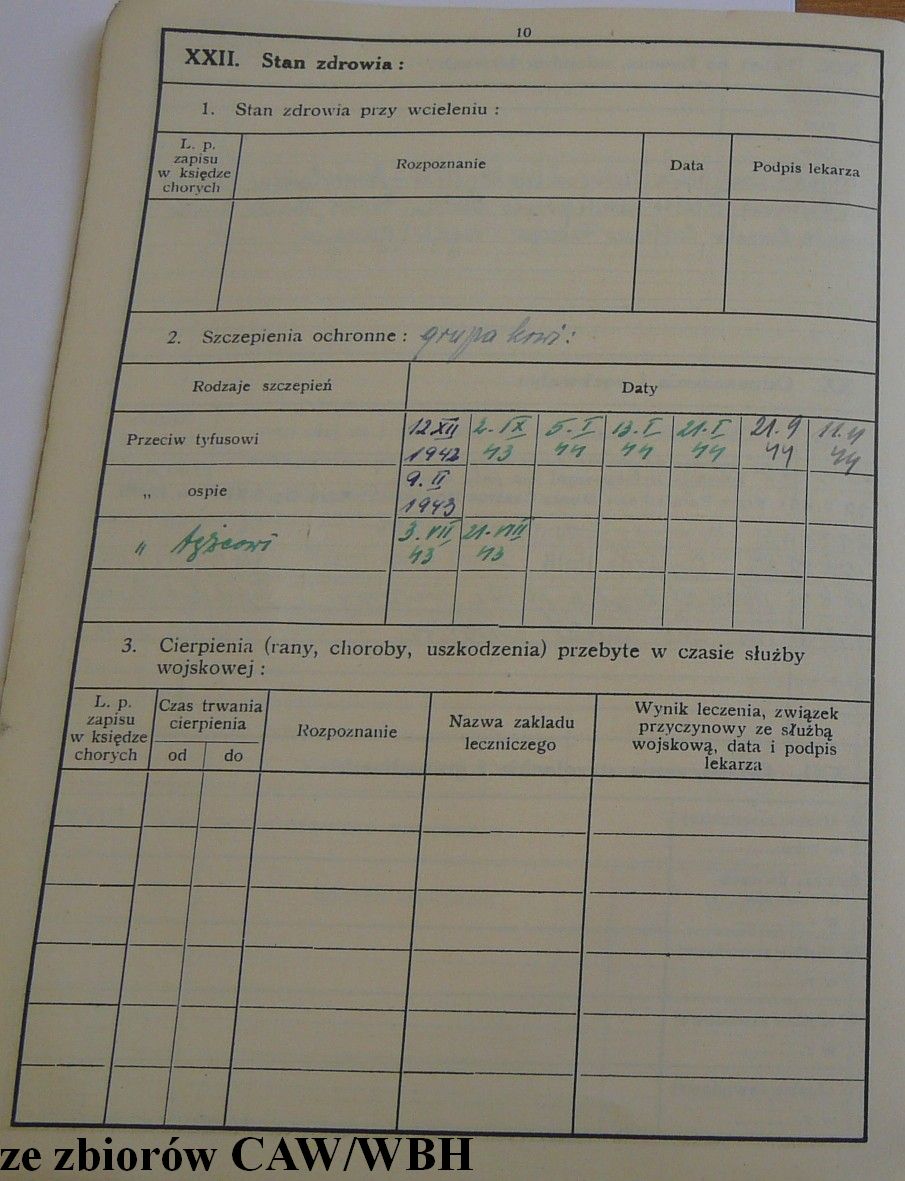 10
XXII. Stan zdrowia :
1. Stan zdrowia przy wcieleniu :
L. p. zapisu w księdze chorych
Rozpoznanie
Data
Podpis lekarza
2. Szczepienia ochronne : grupa krwi:
Rodzaje szczepień
Daty
Przeciw tyfusowi
12 XII 1942
2. IX 43
5. I 44
13. I 44
21. I 44
21. 9 44
44
„ ospie
9. II 1943
„ tężcowi
3. VII 43
21. VIII 43
3. Cierpienia (rany, choroby, uszkodzenia) przebyte w czasie służby
wojskowej :
L. p. zapisu w księdze chorych
Czas trwania cierpienia
od
do
Rozpoznanie
Nazwa zakładu leczniczego
Wynik leczenia, związek przyczynowy ze służbą wojskową, data i podpis lekarza
ze zbiorów CAW/WBH